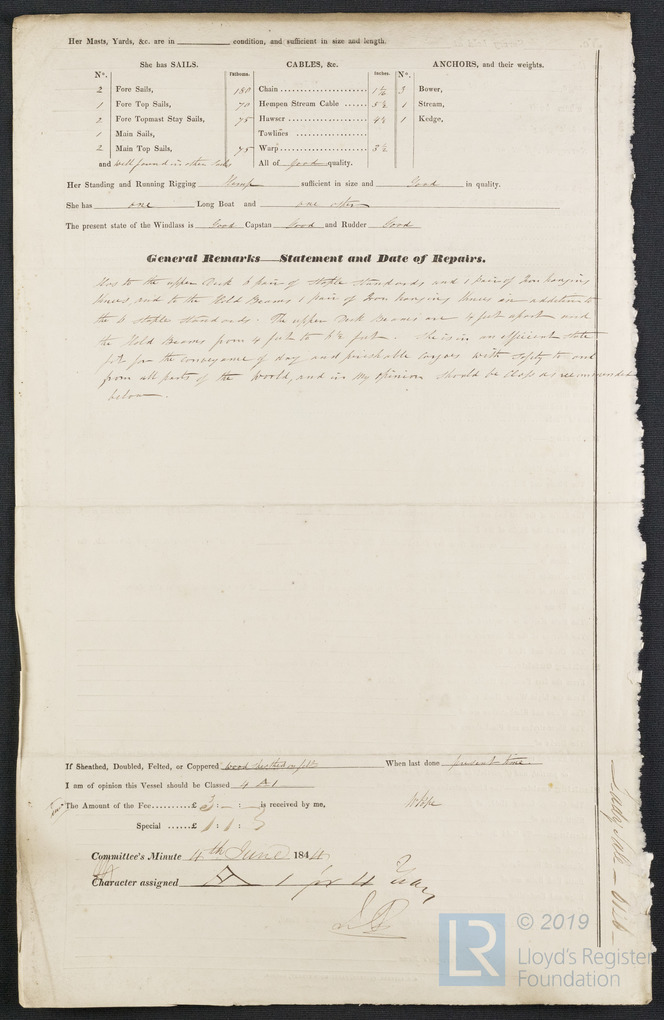 Her Masts, Yards, &c. are in ______ condition, and sufficient in size and length.
She has SAILS. CABLES, &c. ANCHORS, and their weights.
N°. Fathoms. Inches. N°.
2 Fore Sails, 180 Chain 1 5/16 3 Bower,
1 Fore Top Sails, 70 Hempen Stream Cable 5½ 1 Stream,
2 Fore Topmast Stay Sails, 75 Hawser 4½ 1 Kedge,
1 Main Sails, Towlines
2 Main Top Sails, 75 Warp 3½
and well found in other Sails All of good quality.
Her Standing and Running Rigging Hemp sufficient in size and Good in quality.
She has one Long Boat and one other
The present state of the Windlass is Good Capstan Good and Rudder Good
General Remarks—Statement and Date of Repairs.
Has to the upper Deck 6 pair of Staple Standards and 1 pair of Iron hanging
Knees, and to the Hold Beams 1 pair of Iron hanging Knees in addition to
the 6 Staple Standards. The upper Deck Beams are 4 feet apart and
the Hold Beams from 4 feet to 6½ feet. She is in an efficient state
fit for the conveyance of dry and perishable cargoes with safety to and
from all parts of the World, and in my opinion should be Class'd as recommended
below.
If Sheathed, Doubled, Felted, or Coppered wood sheathed on felt When last done present time.
I am of opinion this Vessel should be Classed 4 A 1
The Amount of the Fee..........£ 3 : - : - is received by me,
Special ......£ 1 : 1 :
Committee's Minute 4th June 1844
Character assigned A 1 for 4 Years
Lady Sale - Wisb
© 2019
LR
Lloyd's Register
Foundation